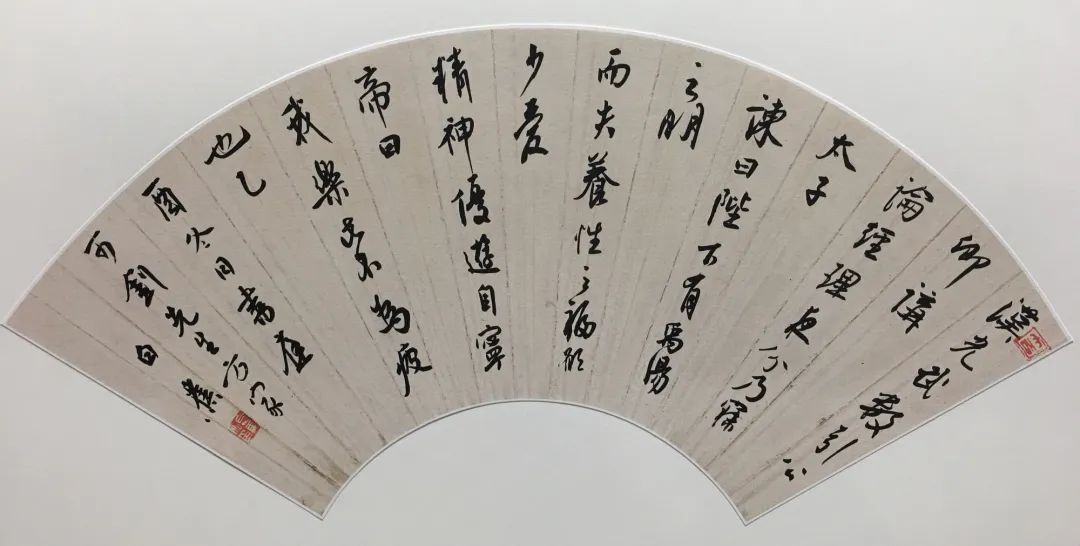 漢光武數引公
卿講
論經理夜分乃寐
太子
諫曰陛下有禹湯
之明
而失養性之福願
少愛
精神優遊自寧
帝曰
我樂此不為疲
也乙
酉冬日書應
可釗先生方家
白蕉